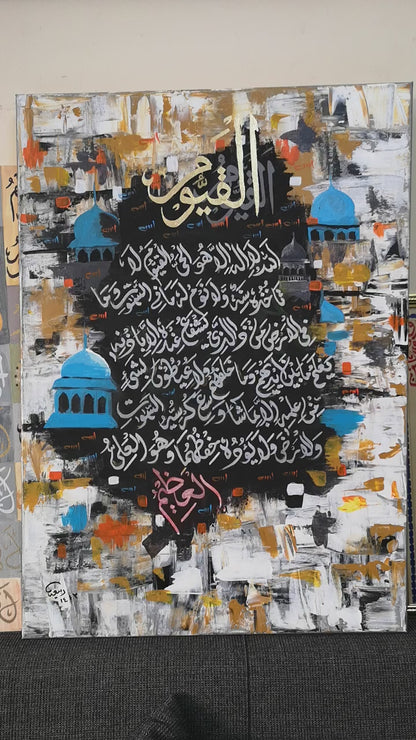 القيوم
الله لا إله إلا هو الحي القيوم لا
تأخذه سنة ولا نوم له ما في السموات وما
في الأرض من ذا الذي يشفع عنده إلا بإذنه
يعلم ما بين أيديهم وما خلفهم ولا يحيطون بشيء
من علمه إلا بما شاء وسع كرسيه السموات
والأرض ولا يؤوده حفظهما وهو العلي
العظيم